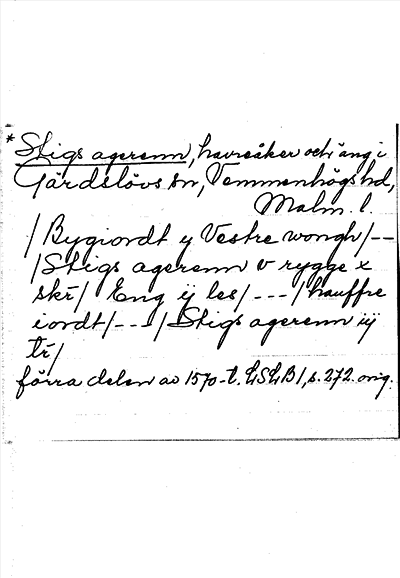 * Stigs agerenn, havreåker och äng i
Gärdslövs sn, Vemmenhögs hd,
Malm. l.
/Bygiordt y Vestre wongh/--
/Stigs agerenn v rygge x
skr̄/ Eng ij les/---/hauffre
iordt/---/Stigs agerenn iij
tr̄/
förra delen av 1570-t. LSLB 1, s. 272. orig.